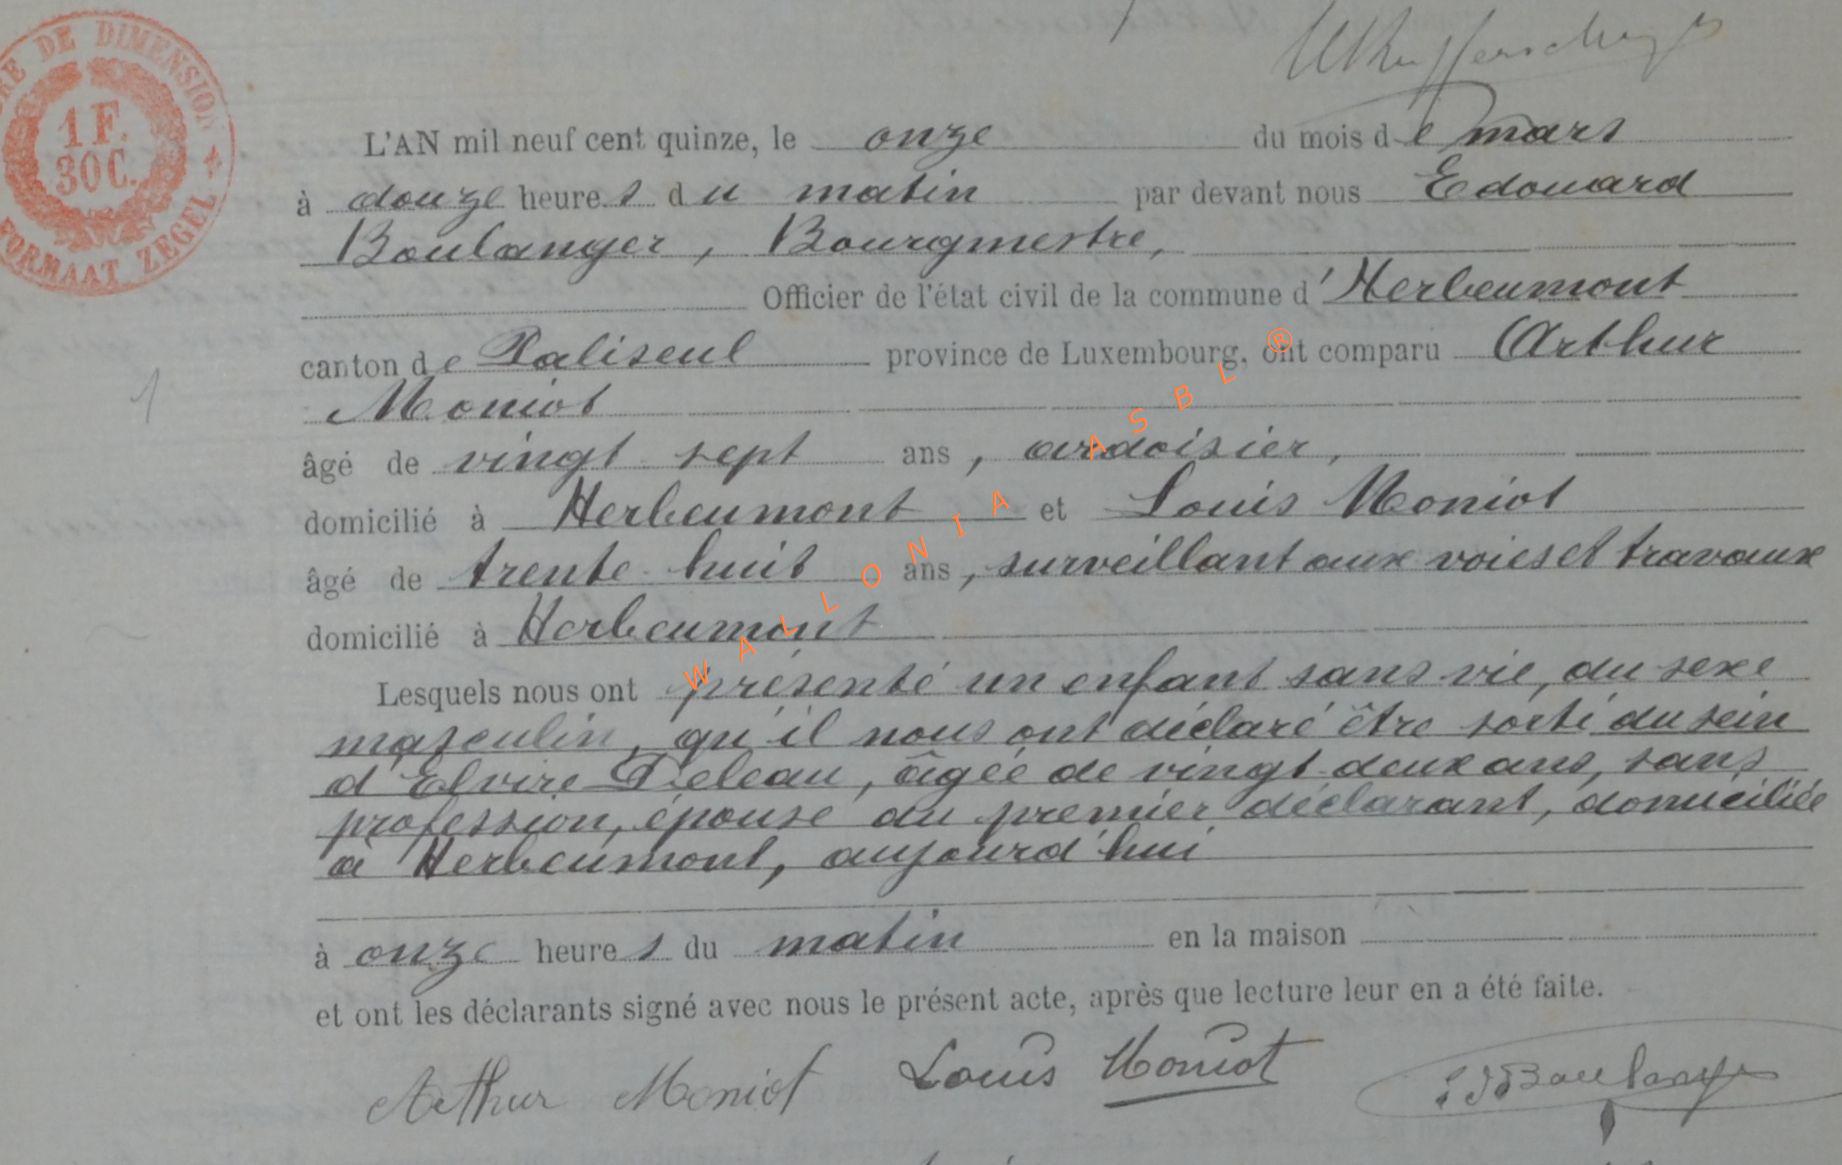 TIMBRE DE DIMENSION
1 F.
30 C.
FORMAAT ZEGEL
L'AN mil neuf cent quinze, le onze du mois de mars
à douze heures du matin par devant nous Edouard
Boulanger, Bourgmestre,
Officier de l'état civil de la commune d'Herbeumont
canton de Paliseul province de Luxembourg, ont comparu Arthur
1
Moniot
âgé de vingt sept ans, ardoisier,
domicilié à Herbeumont et Louis Moniot
âgé de trente-huit ans, surveillant aux voies et travaux
domicilié à Herbeumont
Lesquels nous ont présenté un enfant sans vie, du sexe
masculin, qu'il nous ont déclaré être sorti du sein
d'Elvire Deleau, âgée de vingt-deux ans, sans
profession, épouse du premier déclarant, domiciliée
à Herbeumont, aujourd'hui
à onze heures du matin en la maison
et ont les déclarants signé avec nous le présent acte, après que lecture leur en a été faite.
Arthur Moniot Louis Moniot EBoulanger
WALLONIA ASBL ®